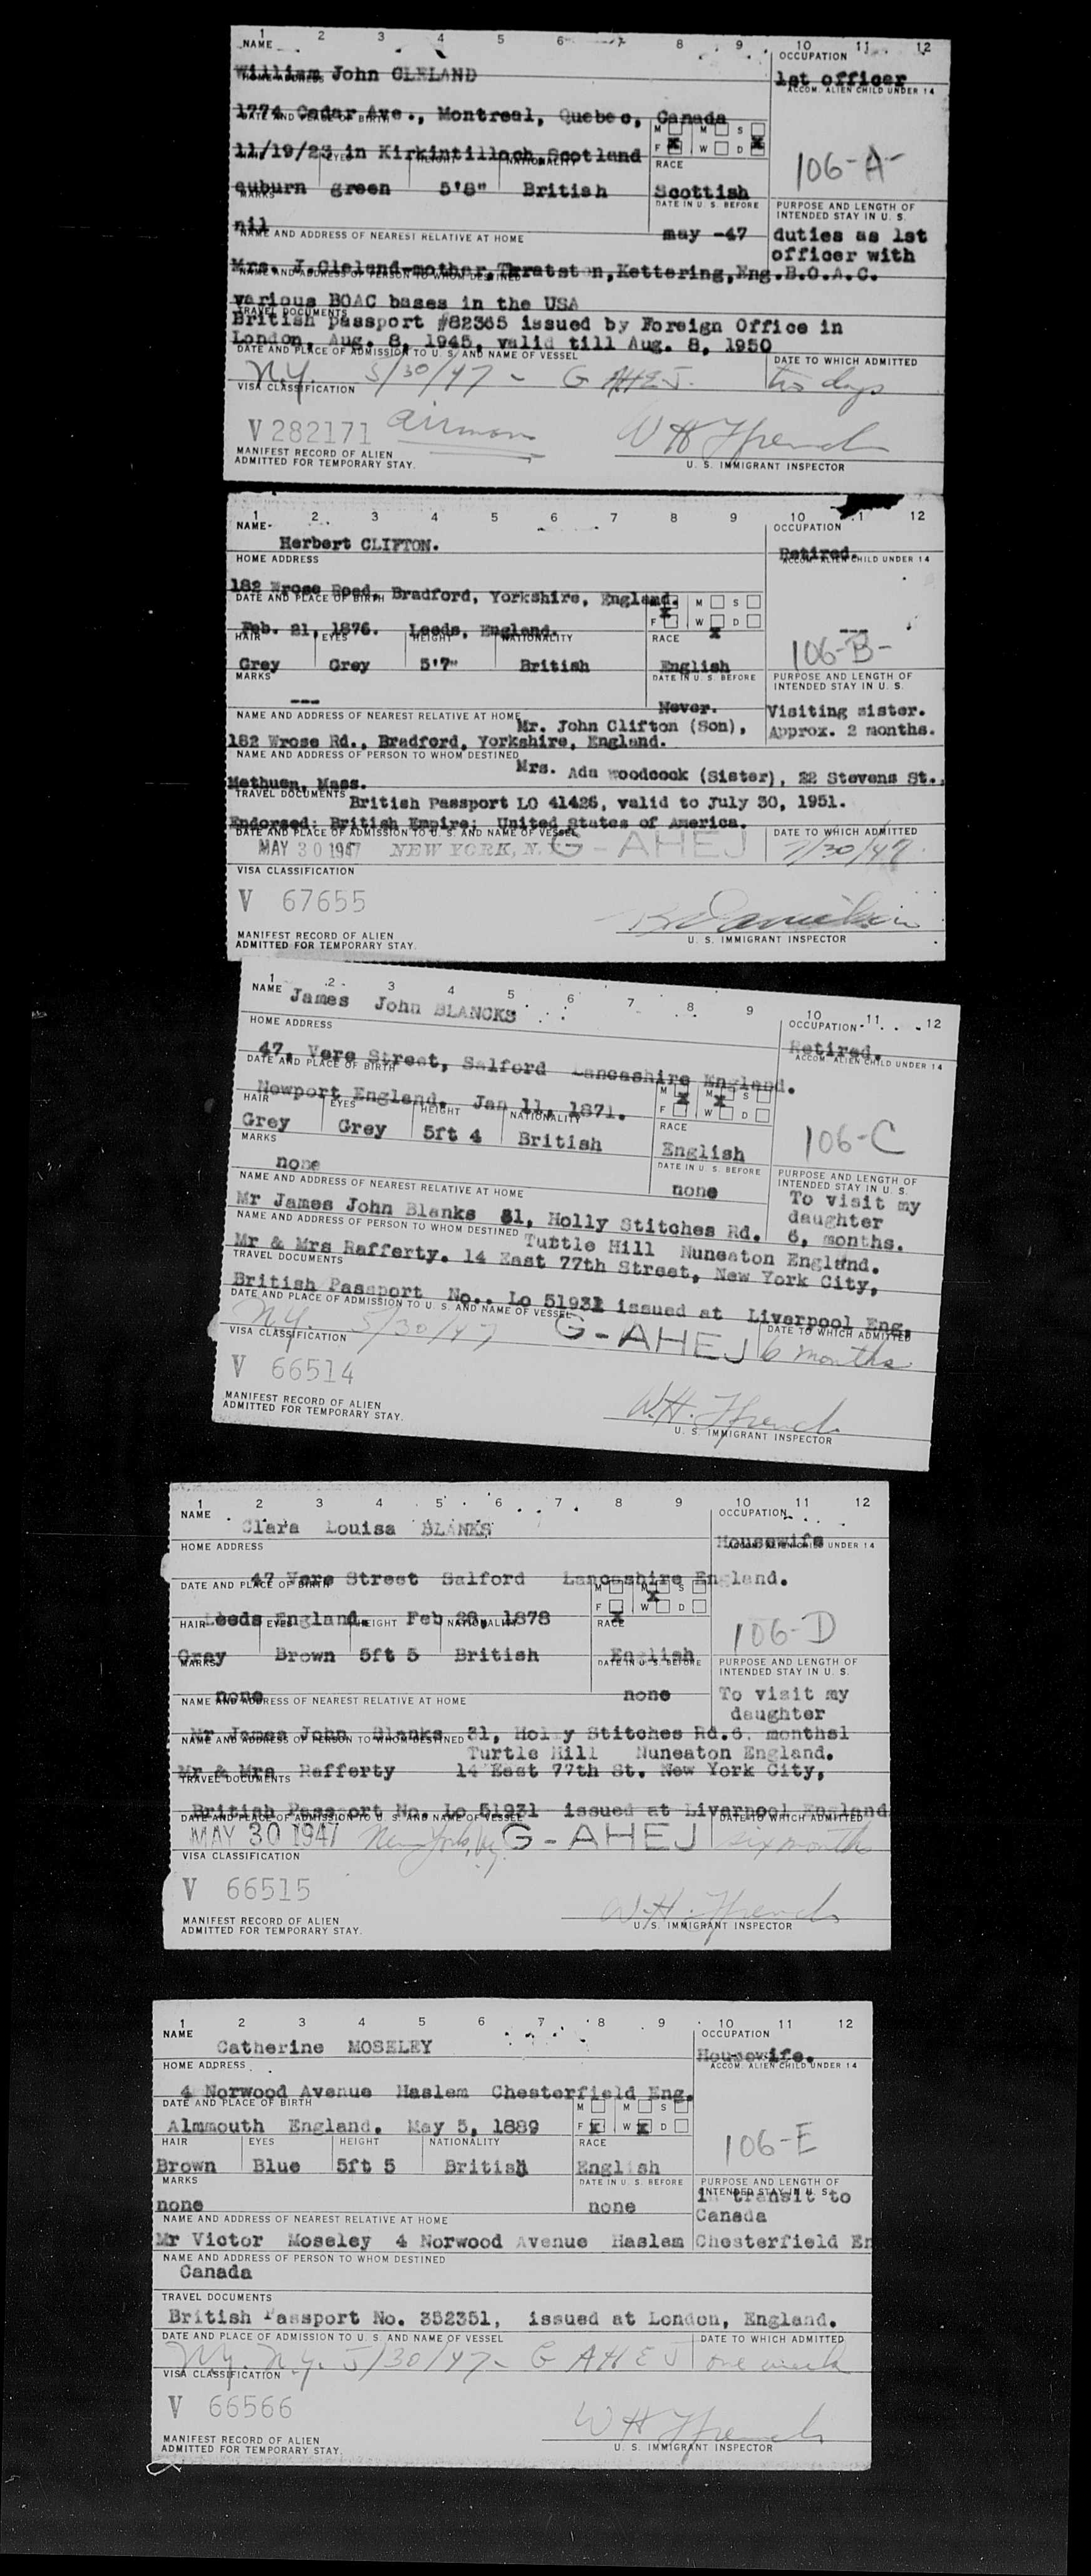 1 2 3 4 5 6 7 8 9 10 11 12
NAME
OCCUPATION
William John CLELAND
1st officer
HOME ADDRESS
ACCOM. ALIEN CHILD UNDER 14
1774 Cedar Ave., Montreal, Quebec, Canada
DATE AND PLACE OF BIRTH
M M S
11/19/23 in Kirkintilloch Scotland
F X W D X
106-A-
EYES HEIGHT NATIONALITY RACE
auburn green 5'8" British Scottish
MARKS DATE IN U. S. BEFORE
PURPOSE AND LENGTH OF
INTENDED STAY IN U. S.
nil may -47 duties as 1st
NAME AND ADDRESS OF NEAREST RELATIVE AT HOME
officer with
Mrs. J. Cleland-mother, Kettering, Eng. B.O.A.C.
NAME AND ADDRESS OF PERSON TO WHOM DESTINED
various BOAC bases in the USA
TRAVEL DOCUMENTS
British passport #82365 issued by Foreign Office in
London, Aug. 8, 1945, valid till Aug. 8, 1950
DATE AND PLACE OF ADMISSION TO U. S. AND NAME OF VESSEL DATE TO WHICH ADMITTED
N.Y. 5/30/47 - G AHEJ. days
VISA CLASSIFICATION
V 282171 airman W H Ffrench
MANIFEST RECORD OF ALIEN
ADMITTED FOR TEMPORARY STAY.
U. S. IMMIGRANT INSPECTOR
1 2 3 4 5 6 7 8 9 10 11 12
NAME OCCUPATION
Herbert CLIFTON. Retired.
HOME ADDRESS ACCOM. ALIEN CHILD UNDER 14
182 Wrose Road, Bradford, Yorkshire, England.
DATE AND PLACE OF BIRTH
M X M S
Feb. 21, 1876. Leeds, England.
F W X D
---
106-B-
HAIR EYES HEIGHT NATIONALITY RACE
Grey Grey 5'7" British English
MARKS DATE IN U. S. BEFORE
PURPOSE AND LENGTH OF
INTENDED STAY IN U. S.
--- Never. Visiting sister.
NAME AND ADDRESS OF NEAREST RELATIVE AT HOME
Mr. John Clifton (Son), Approx. 2 months.
182 Wrose Rd., Bradford, Yorkshire, England.
NAME AND ADDRESS OF PERSON TO WHOM DESTINED
Mrs. Ada Woodcock (Sister), 22 Stevens St.,
Methuen, Mass.
TRAVEL DOCUMENTS
British Passport LO 41426, valid to July 30, 1951.
Endorsed: British Empire; United States of America.
DATE AND PLACE OF ADMISSION TO U. S. AND NAME OF VESSEL DATE TO WHICH ADMITTED
MAY 30 1947 NEW YORK, N. G-AHEJ 7/30/47
VISA CLASSIFICATION
V 67655
MANIFEST RECORD OF ALIEN
ADMITTED FOR TEMPORARY STAY.
U. S. IMMIGRANT INSPECTOR
1 2 3 4 5 6 7 8 9 10 11 12
NAME OCCUPATION
James John BLANCKS Retired.
HOME ADDRESS ACCOM. ALIEN CHILD UNDER 14
47, Vere Street, Salford Lancashire England.
DATE AND PLACE OF BIRTH
M X M X S
Newport England. Jan 11, 1871.
F W D
106-C
HAIR EYES HEIGHT NATIONALITY RACE
Grey Grey 5ft 4 British English
MARKS DATE IN U. S. BEFORE
PURPOSE AND LENGTH OF
INTENDED STAY IN U. S.
none none To visit my
daughter
NAME AND ADDRESS OF NEAREST RELATIVE AT HOME
Mr James John Blanks 31, Holly Stitches Rd. 6, months.
NAME AND ADDRESS OF PERSON TO WHOM DESTINED
Tuttle Hill Nuneaton England.
Mr & Mrs Rafferty. 14 East 77th Street, New York City,
TRAVEL DOCUMENTS
British Passport No.. Lo 51931 issued at Liverpool Eng,
DATE AND PLACE OF ADMISSION TO U. S. AND NAME OF VESSEL DATE TO WHICH ADMITTED
N.Y. 5/30/47 G-AHEJ 6 months
VISA CLASSIFICATION
V 66514
MANIFEST RECORD OF ALIEN
ADMITTED FOR TEMPORARY STAY.
W.H. Ffrench
U. S. IMMIGRANT INSPECTOR
1 2 3 4 5 6 7 8 9 10 11 12
NAME OCCUPATION
Clara Louisa BLANKS Housewife
HOME ADDRESS ACCOM. ALIEN CHILD UNDER 14
47 Vere Street Salford Lancashire England.
DATE AND PLACE OF BIRTH
M M X S
Leeds England. Feb 28, 1878
F X W D
106-D
HAIR EYES HEIGHT NATIONALITY RACE
Gray Brown 5ft 5 British English
MARKS DATE IN U. S. BEFORE
PURPOSE AND LENGTH OF
INTENDED STAY IN U. S.
none none To visit my
daughter
NAME AND ADDRESS OF NEAREST RELATIVE AT HOME
Mr James John Blanks 31, Holly Stitches Rd. 6, monthsl
NAME AND ADDRESS OF PERSON TO WHOM DESTINED
Turtle Hill Nuneaton England.
Mr & Mrs Rafferty 14 East 77th St. New York City,
TRAVEL DOCUMENTS
British Passport No. Lo 51931 issued at Liverpool England
DATE AND PLACE OF ADMISSION TO U. S. AND NAME OF VESSEL DATE TO WHICH ADMITTED
MAY 30 1947 New York, N.Y. G-AHEJ six months
VISA CLASSIFICATION
V 66515
MANIFEST RECORD OF ALIEN
ADMITTED FOR TEMPORARY STAY.
W.H. Ffrench
U. S. IMMIGRANT INSPECTOR
1 2 3 4 5 6 7 8 9 10 11 12
NAME OCCUPATION
Catherine MOSELEY Housewife.
HOME ADDRESS ACCOM. ALIEN CHILD UNDER 14
4 Norwood Avenue Haslem Chesterfield Eng.
DATE AND PLACE OF BIRTH
M M S
Almmouth England. May 5, 1889
F X W X D
106-E
HAIR EYES HEIGHT NATIONALITY RACE
Brown Blue 5ft 5 British English
MARKS DATE IN U. S. BEFORE
PURPOSE AND LENGTH OF
INTENDED STAY IN U. S.
In transit to
none none Canada
NAME AND ADDRESS OF NEAREST RELATIVE AT HOME
Mr Victor Moseley 4 Norwood Avenue Haslem Chesterfield En
NAME AND ADDRESS OF PERSON TO WHOM DESTINED
Canada
TRAVEL DOCUMENTS
British Passport No. 352351, issued at London, England.
DATE AND PLACE OF ADMISSION TO U. S. AND NAME OF VESSEL DATE TO WHICH ADMITTED
N.Y. N.Y. 5/30/47- G AHEJ one week
VISA CLASSIFICATION
V 66566
MANIFEST RECORD OF ALIEN
ADMITTED FOR TEMPORARY STAY.
W H Ffrench
U. S. IMMIGRANT INSPECTOR